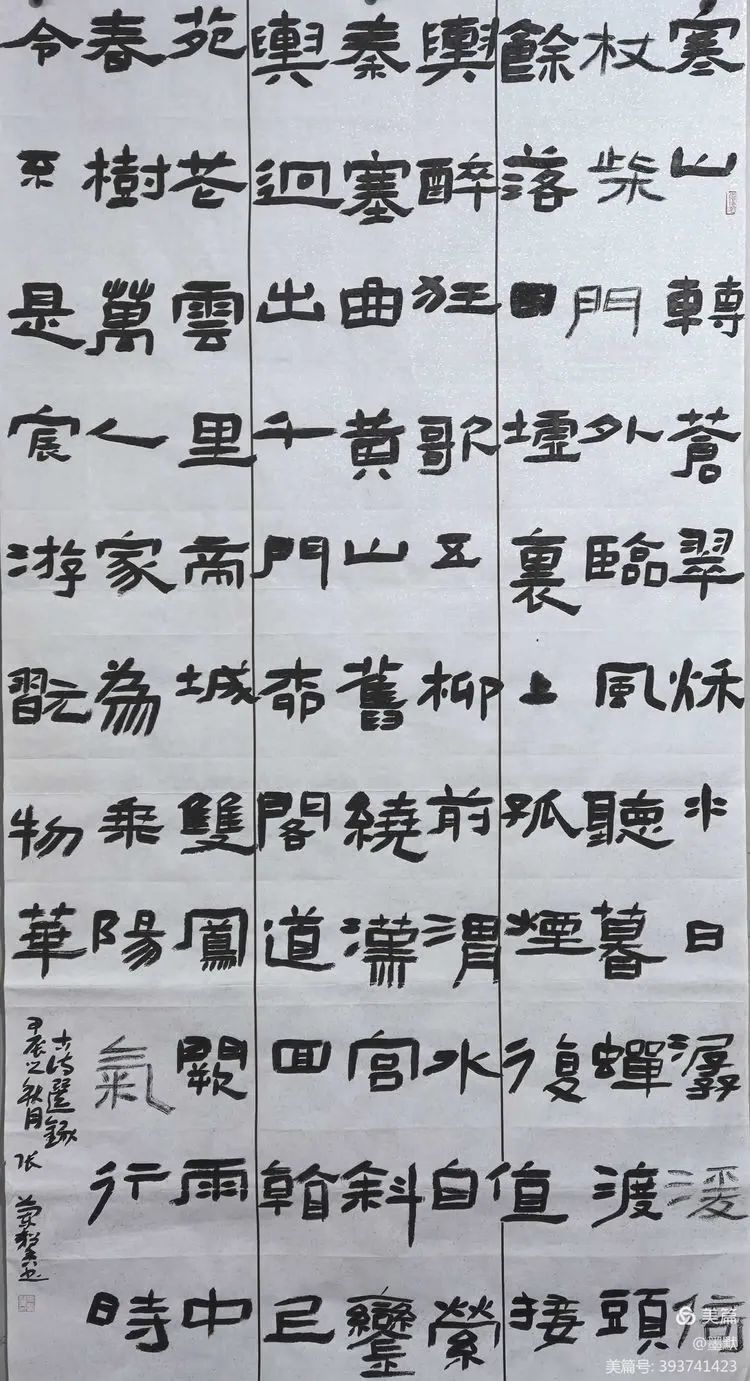 寒山轉蒼翠秋水日潺湲倚
杖柴門外臨風聽暮蟬渡頭
餘落日墟裏上孤煙復值接
輿醉狂歌五柳前渭水自縈
秦塞曲黃山舊繞漢宮斜鑾
輿迥出千門柳閣道回看已
苑花雲里帝城雙鳳闕雨中
春樹萬人家為乘陽氣行時
令不是宸游翫物華
古詩選錄
甲辰之秋月 張
美篇
@墨默
美篇号: 393741423